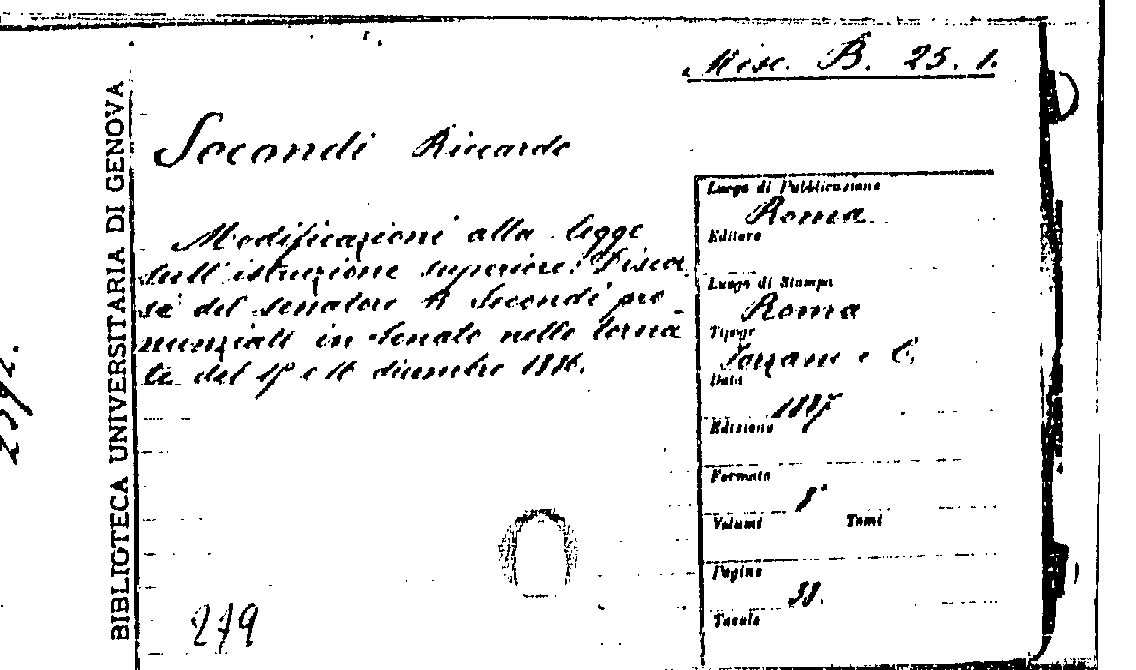 Misc. B. 25. 1.
BIBLIOTECA UNIVERSITARIA DI GENOVA
Secondi Riccardo
Modificazioni alla legge
sull'istruzione superiore. Discor
si del senatore R Secondi pro
nunziati in Senato nelle torna
te del e 16 dicembre 1886.
Luogo di Pubblicazione
Roma
Editore
Luogo di Stampa
Roma
Tipogr
Forzani e C.
Data
1887
Edizione
Formato
8°
Volumi Tomi
Pagine
38.
Tavole
279